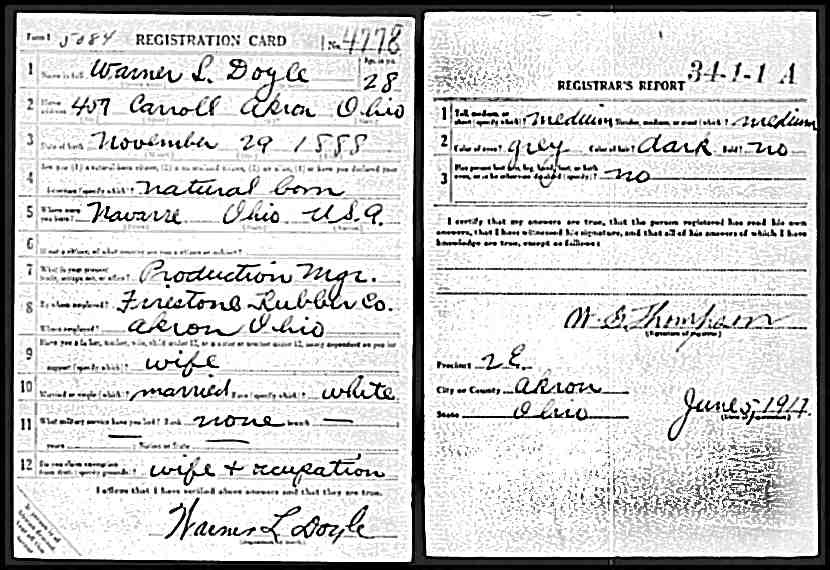 Form 1 5084 REGISTRATION CARD No. 4778
1 Name in full Warner L. Doyle Age, in yrs. 28
2 Home address 407 Carroll Akron Ohio
3 Date of birth November 29 1888
4 Are you (1) a natural-born citizen, (2) a naturalized citizen, (3) an alien, (4) or have you declared your
intention (specify which)? natural born
5 Where were you born? Navarre Ohio U.S.A.
6 If not a citizen, of what country are you a citizen or subject?
7 What is your present trade, occupation, or office? Production Mgr.
8 By whom employed? Firestone Rubber Co.
Where employed? Akron Ohio
9 Have you a father, mother, wife, child under 12, or a sister or brother under 12, solely dependent on you for
support (specify which)? wife
10 Married or single (which)? married Race (specify which)? white
11 What military service have you had? Rank none branch —
years — Nation or State —
12 Do you claim exemption from draft (specify grounds)? wife + ocupation
I affirm that I have verified above answers and that they are true.
Warner L Doyle
34-1-1 A
REGISTRAR'S REPORT
1 Tall, medium, or short (specify which)? medium Slender, medium, or stout (which)? medium
2 Color of eyes? grey Color of hair? dark Bald? no
3 Has person lost arm, leg, hand, foot, or both eyes, or is he otherwise disabled (specify)? no
I certify that my answers are true, that the person registered has read his own
answers, that I have witnessed his signature, and that all of his answers of which I have
knowledge are true, except as follows:
W. S. Thompson
(Signature of registrar)
Precinct 2 E.
City or County Akron
State Ohio
June 5, 1917
(Date of registration)